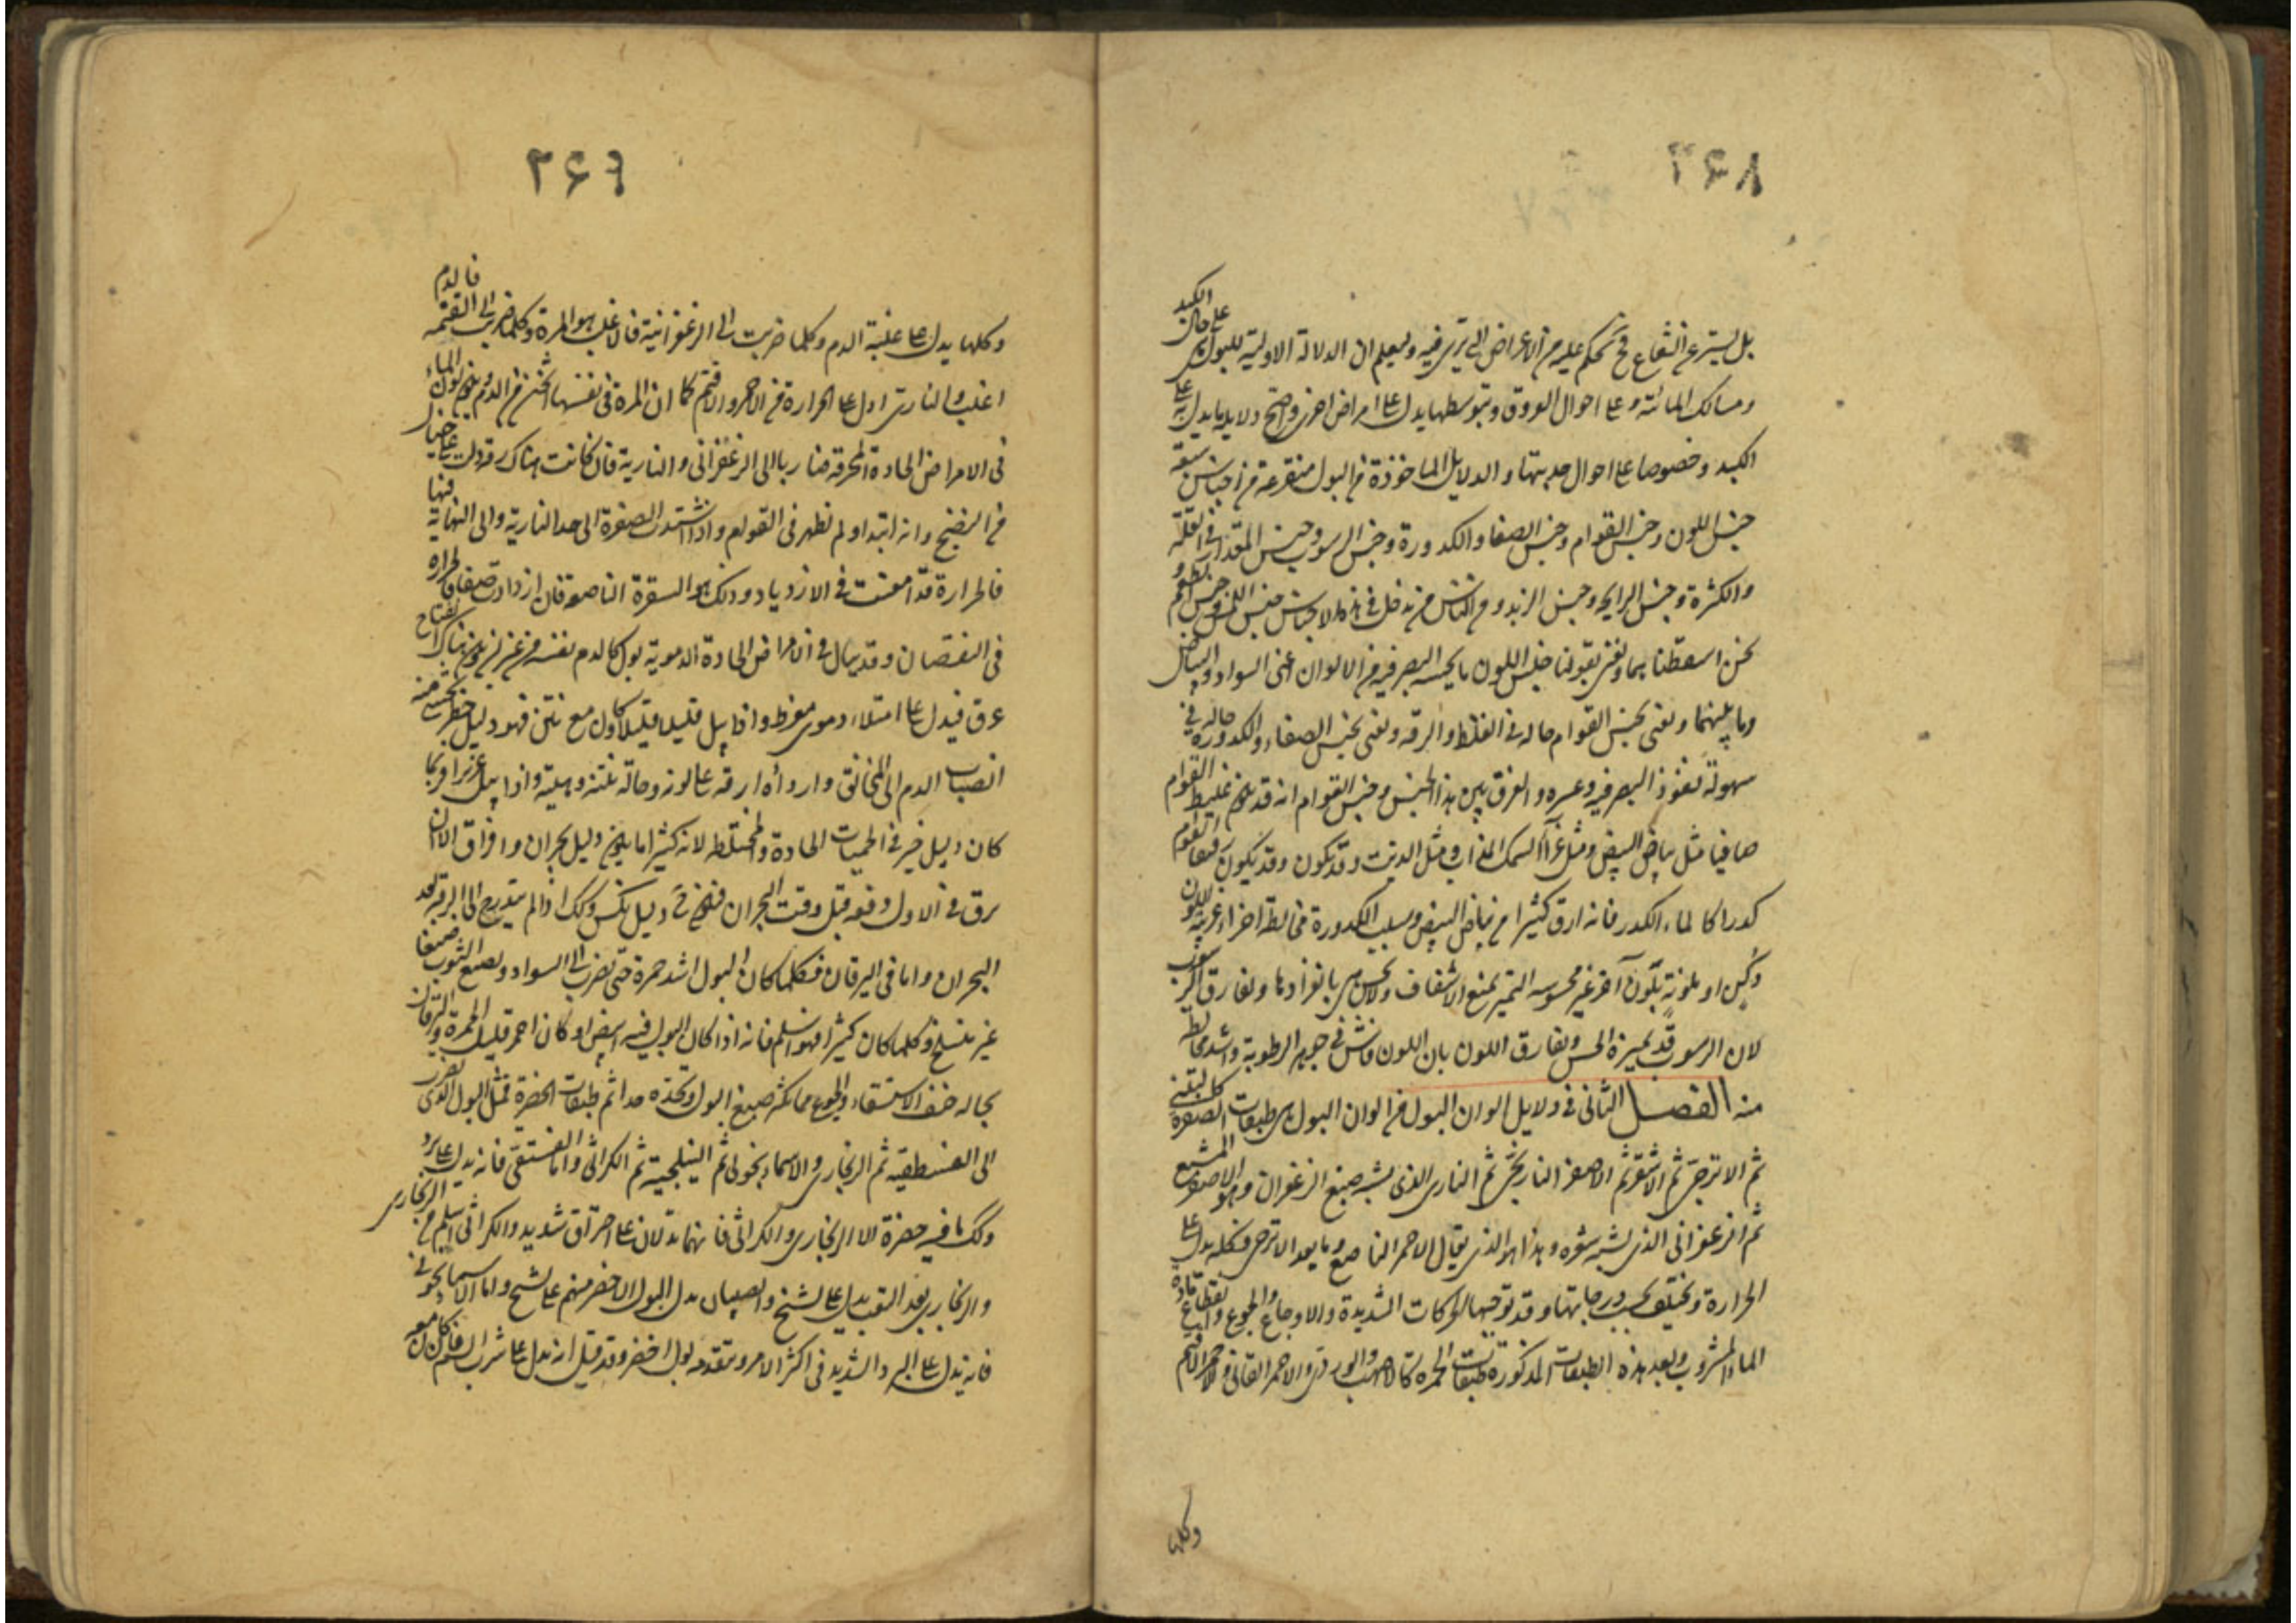 ۲۶۸
بل يستر عن الشعاع فح يحكم عليه من الاعراض التى ترى فيه وليعلم ان الدلالة الاولية للبول هى على حال الكبد
ومسالك المائية و على احوال العروق وبتوسطها يدل على امراض اخرى واصح دلايله ما يدل به على
الكبد وخصوصا على احوال حدبتها والدلايل الماخوذة من البول منتزعة من اجناس سبعة
جنس اللون وجنس القوام وجنس الصفا والكدورة وجنس الرسوب وجنس المقدار فى القلة
والكثرة وجنس الرايحه وجنس الزبد ومن الناس من يدخل فى هذه الاجناس جنس اللمس وجنس الطعم و
نحن اسقطناهما ونعنى بقولنا جنس اللون ما يحسه البصر فيه من الالوان اعنى السواد والبياض
وما بينهما ونعنى بجنس القوام حاله فى الغلظ والرقه ونعنى بجنس الصفاء والكدورة حاله فى
سهولة نفوذ البصر فيه وعسره والفرق بين هذا الجنس وجنس القوام انه قد يكون غليظ القوام
صافيا مثل بياض البيض ومثل غرآ السمك المذاب ومثل الزيت وقد يكون وقد يكون رقيق القوام
كدرا كالماء الكدر فانه ارق كثيرا من بياض البيض وسبب الكدورة مخالطة اجزاء غريبة اللون
دكن او ملونة بلون آخر غير محسوسه التميز تمنع الاشفاف ولا تحس هى بانفرادها وتفارق الرسوب
لان الرسوب قد يميزه الحس ويفارق اللون بان اللون فاش فى جوهر الرطوبة واشد مخالطة
منه الفصل الثانى فى دلايل الوان البول من الوان البول هى طبقات الصفرة كالتبنى
ثم الاترجى ثم الاشقر ثم الاصفر النارنجى ثم النارى الذى يشبه صبغ الزعفران وهو الاصفر المشبع
ثم الزعفرانى الذى يشبه شقره وهذا هو الذى يقال الاحمر الناصع وما بعد الاترجى فكله يدل على
الحرارة ويختلف بحسب درجاتها وقد توجبها الحركات الشديدة والاوجاع والجوع وانقطاع مادة
الماء المشروب وبعد هذه الطبقات المذكورة طبقات الحمرة كالاصهب والوردى والاحمر القانى والاحمر الاقتم
وكلها
۲۶۹
وكلها يدل على غلبة الدم وكلما ضربت الى الزعفرانية فالاغلب هو المرة وكلما ضربت الى القتمه فالدم
اغلب والنارى ادل على الحرارة من الاحمر والاقتم كما ان المرة فى نفسها اسخن من الدم ويكون لون الماء
فى الامراض الحادة المحرقة ضاربا الى الزعفرانى والنارية فان كانت هناك رقة دل على حال
من النضج وانه ابتدا ولم تظهر فى القوام واذا اشتدت الصفرة الى حد النارية والى النهاية فيها
فالحرارة قد امعنت فى الازدياد وذلك هو الشقرة الناصعه فان ازدادت صفا فالحرارة
فى النقصان وقد يبال فى الامراض الحادة الدموية بول كالدم نفسه من غير ان يكون هناك انفتاح
عرق فيدل على امتلاء دموى مفرط واذا بيل قليلا قليلا وكان مع نتن فهو دليل خطر يخشى منه
انصباب الدم الى المخانق واردأه ارقه على لونه وحاله نتنه وهيئته واذا بيل غزيرا فربما
كان دليل خير فى الحميات الحادة والمختلطه لانه كثيرا ما يكون دليل بحران وافراق الا ان
يرق فى الاول دفعه قبل وقت البحران فيكون ح دليل نكس وكذلك اذا لم يتدرج الى الرقه بعد
البحران واما فى اليرقان فكلما كان البول اشد حمرة حتى تضرب الى السواد ويصبغ الثوب صبغا
غير منسلخ وكلما كان كثيرا فهو اسلم فانه اذا كان البول فيه ابيض او كان احمر قليل الحمرة واليرقان
بحاله خيف الاستسقاء والجوع مما يكثر صبغ البول ويحده جدا ثم طبقات الخضرة مثل البول الذى يضرب
الى الفستقيه ثم الزنجارى والاسمانجونى ثم النيلجية ثم الكراثى واما الفستقى فانه يدل على برد
وكذلك ما فيه خضرة الا الزنجارى والكراثى فانهما يدلان على احتراق شديد والكراثى اسلم من الزنجارى
والزنجارى بعد التعب يدل على تشنج والصبيان يدل البول الاخضر منهم على تشنج واما الاسمانجونى
فانه يدل على البرد الشديد فى اكثر الامر ويتقدمه بول اخضر وقد قيل انه يدل على شرب السم فان كان معه